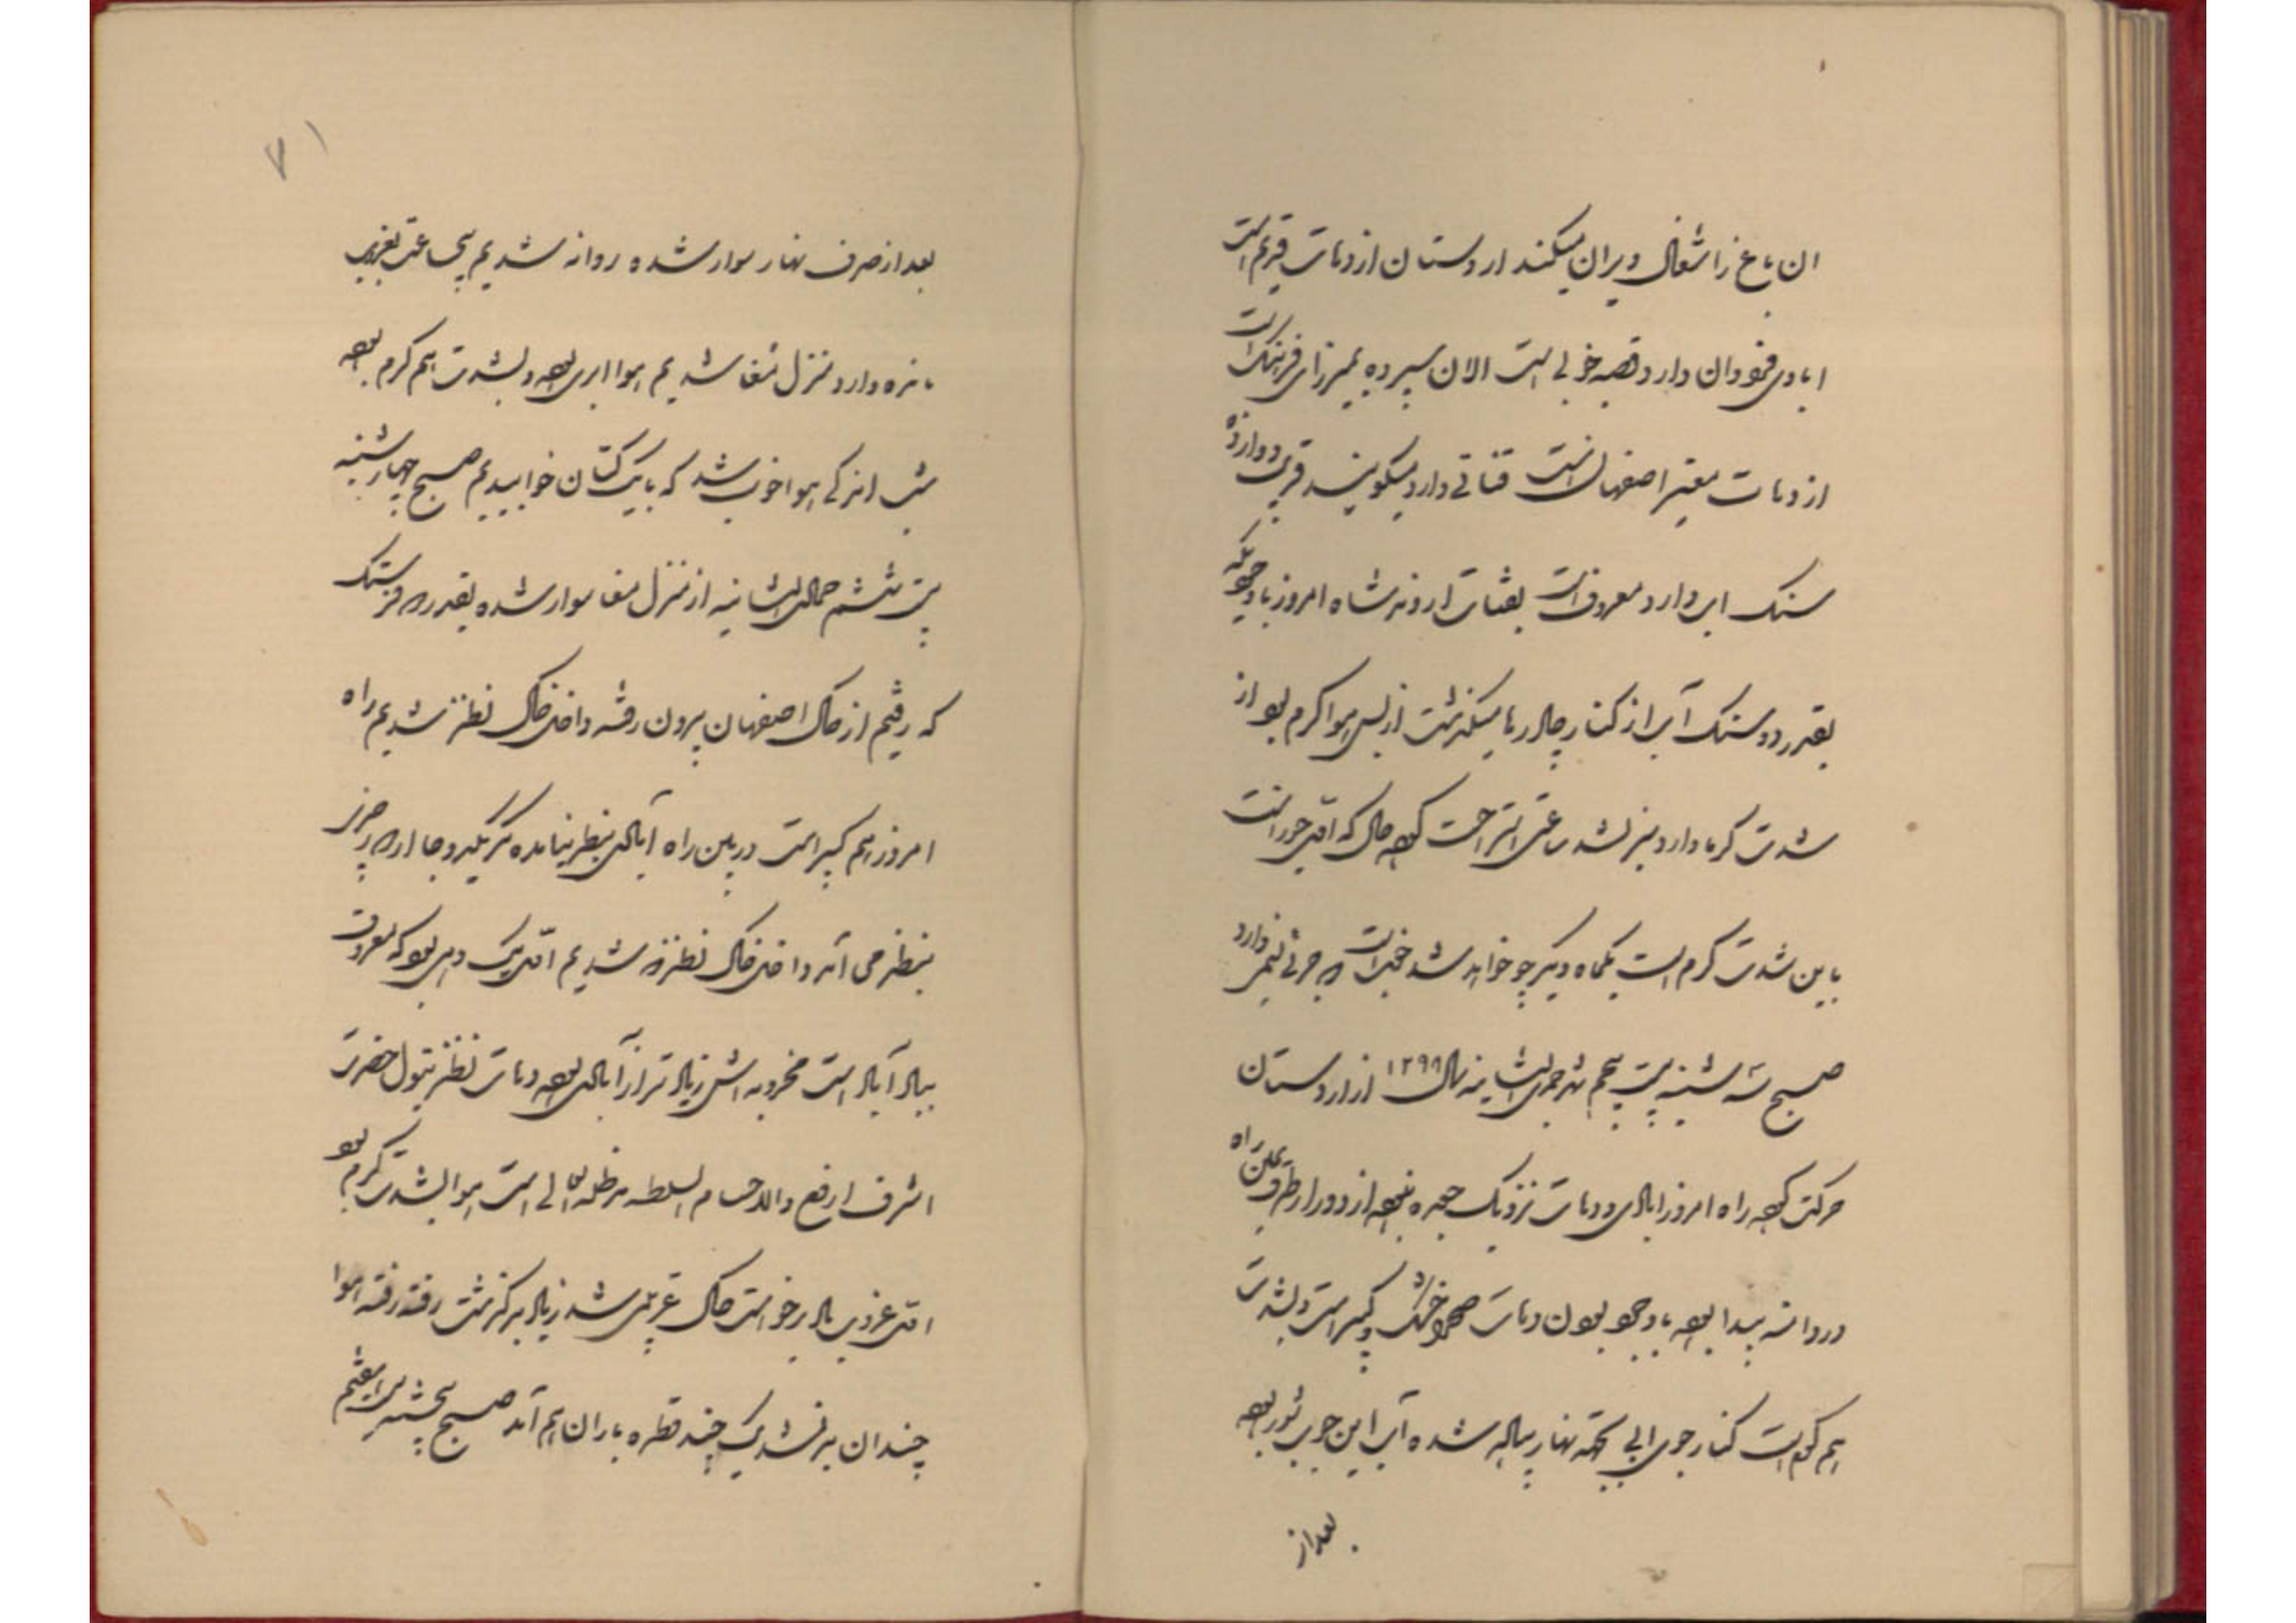 ان باغ را شغال ویران میکند اردستان از دهات قدیم است
ابادی فراوان دارد قصبه خوبی است الان سپرده بمیرزای فرهنگ است
از دهات معتبر اصفهان است قناتی دارد میگویند قریب دوازده
سنگ اب دارد معروف است بقنات ارونه شاه امروز باوجودیکه
بقدر دو سنگ آب از کنار چادرها میگذشت از بس هوا گرم بود از
شدت گرما دارد میز نشد ساعتی استراحت کرده حال که اول جوزاست
باین شدت گرم است یکماه دیگر چه خواهد شد خیلی است
صبح سه شنبه بیست پنجم شهر جمادی الثانیه سال ۱۲۹۸ از اردستان
حرکت کرده راه امروز ابادی و دهات نزدیک جعده نبود از دور از طرف یمین راه
دردانه پیدا بود باوجود بودن دهات صحرا خشک و کبیر است و بشدت
هم گرم است کنار جوی ابی تخته نهار پیاده شده آب این جوب شور بود
بعد از
۷۱
بعد از صرف نهار سوار شده روانه شدیم پنج ساعت بغروب
مانده وارد منزل مغا شدیم هوا ابری بود و بشدت هم گرم بود
شب اندکی هوا خوب شد که با یک کتان خوابیدیم صبح چهارشنبه
بیست ششم جمادی الثانیه از منزل مغا سوار شده بقدر فرسنگ
که رفتیم از خاک اصفهان بیرون رفته داخل خاک نطنز شدیم راه
امروز هم کبیر است در بین راه آبادی بنظر نیامده مگر یکی دو جا
بنظر می آمد داخل خاک نطنز که شدیم اول یک دهی بود که معروف
بباد آباد است مخروبه اش زیادتر از آبادی بود دهات نطنز بتیول حضرت
اشرف ارفع والا حسام السلطنه مدظله العالی است هوا بشدت گرم بود
اول غروب باد برخواست خاک غریبی شد زیاد بر گذشت رفته رفته هوا
چندان سرد نشد یک چند قطره باران هم آمد صبح پنجشنبه بیست هفتم